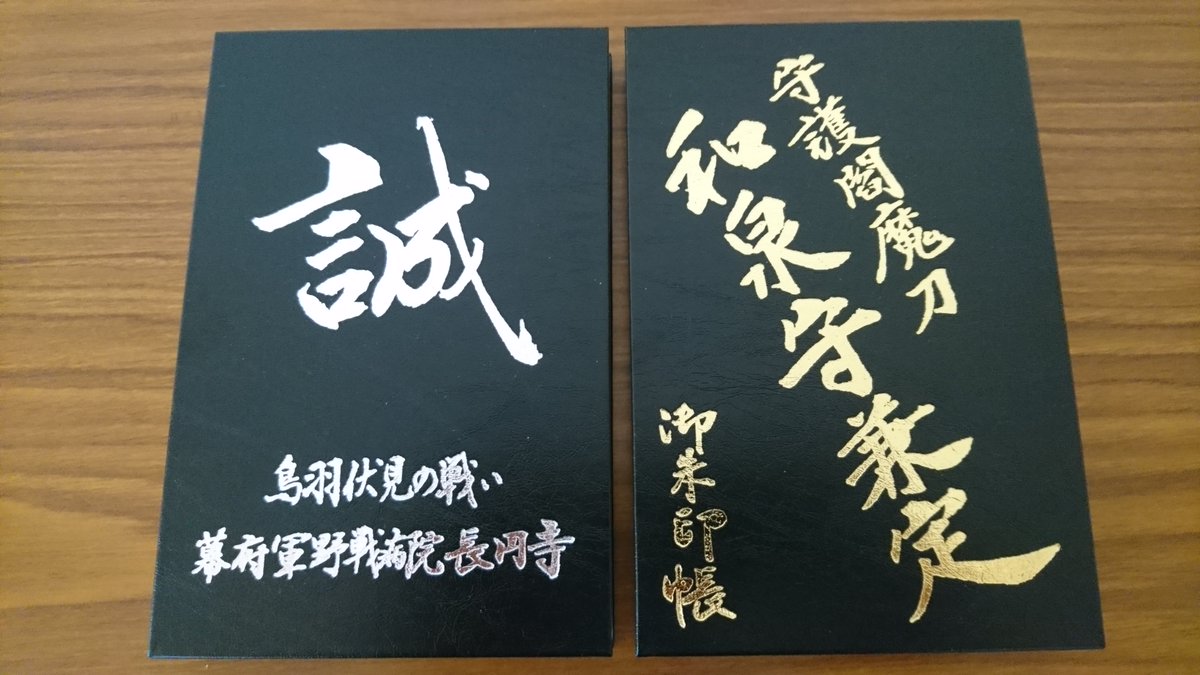 誠
鳥羽伏見の戦い
幕府軍野戦病院長円寺
守護閻魔刀
和泉守兼定
御朱印帳